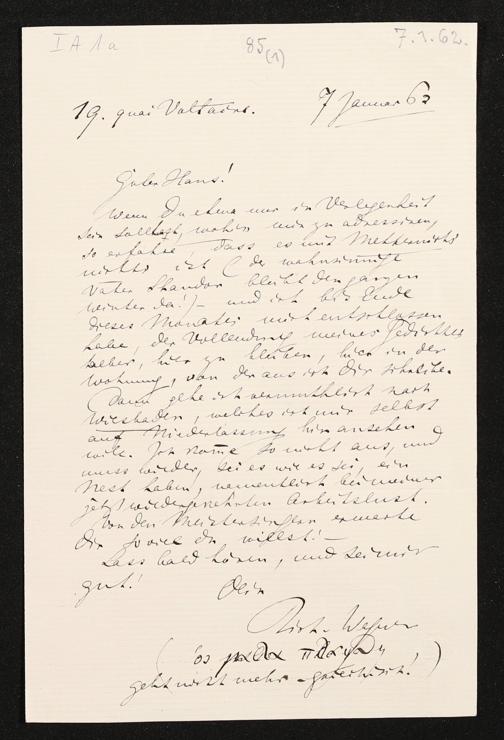 I A 1a
85
(1)
7.1.62.
19. quai Voltaire.
7 Januar 62
Guter Hans!
Wenn Du etwa nur in Verlegenheit
sein solltest, wohin mir zu adressiren,
so erfahre, dass es mit Metternich's
nichts ist (der wahnsinnige
Vater Shandor bleibt den ganzen
Winter da!) – und ich bis Ende
dieses Monates mich entschlossen
habe, der Vollendung meines Gedichtes
halber, hier zu bleiben, hier in der
Wohnung, von der aus ich Dir schreibe.
Dann gehe ich vermuthlich nach
Wiesbaden, welches ich mir selbst
auf Niederlassung hin ansehen
will. Ich komme so nicht aus, und
muss wieder, sei es wie es sei, ein
Nest haben, namentlich bei meiner
jetzt wiedergekehrten Arbeitslust.
Von den Meistersingern erwarte
Dir so viel du willst! –
Lass bald hören, und sei mir
gut!
Dein
Rich. Wagner
( ὃς μαλα
geht nicht mehr – griechisch! )